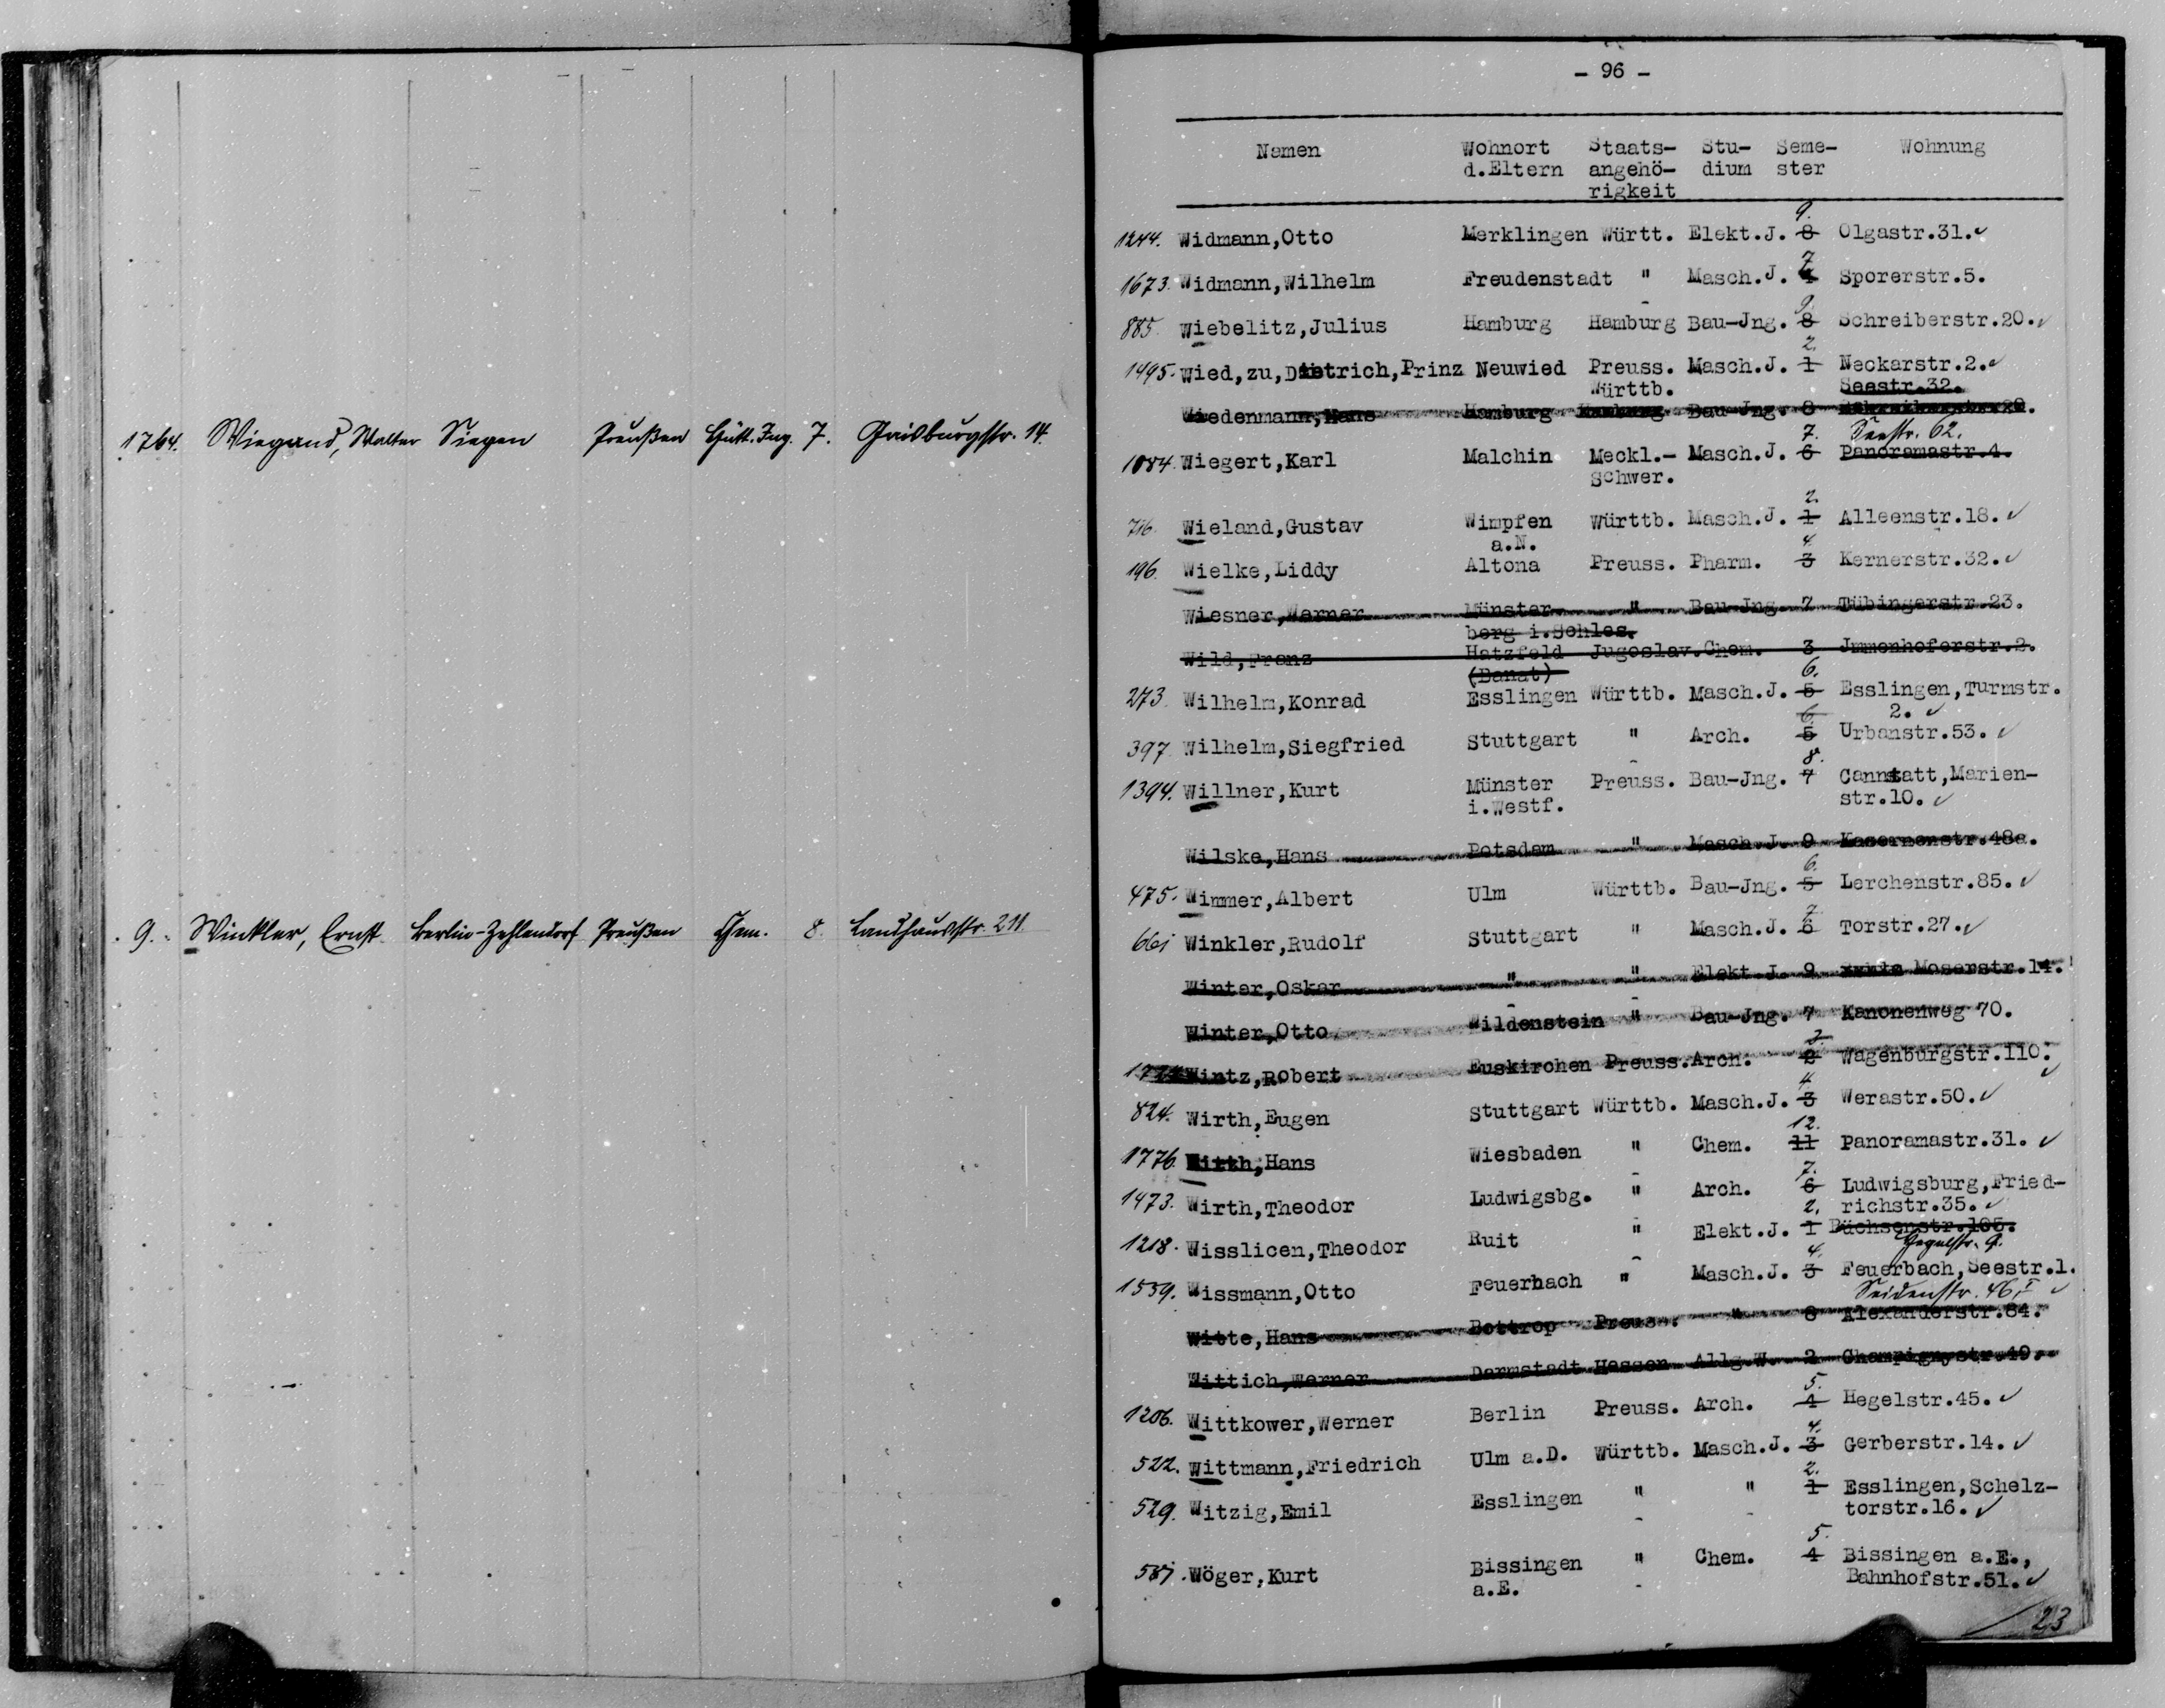 1764. Wiegand, Walter Siegen Preußen Hütt. Ing. 7. Gaisburgstr. 14.
9. Winkler, Ernst Berlin-Zehlendorf Preußen Chem. 8. Landhausstr. 211.
- 96 -
Namen Wohnort Staats- Stu- Seme- Wohnung
d.Eltern angehö- dium ster
rigkeit
9.
1244. Widmann,Otto Merklingen Württ. Elekt.J. 8 Olgastr.31.
7
1673. Widmann,Wilhelm Freudenstadt " Masch.J. Sporerstr.5.
9.
885. Wiebelitz,Julius Hamburg Hamburg Bau-Jng. 8 Schreiberstr.20.
2.
1495. Wied,zu,Dietrich,Prinz Neuwied Preuss. Masch.J. 1 Neckarstr.2.
Württb. Seestr.32.
Wiedenmann,Hans Hamburg Hamburg Bau-Jng. 8
7. Seestr. 62.
1084. Wiegert,Karl Malchin Meckl.- Masch.J. 6 Panoramastr.4.
Schwer.
2.
716. Wieland,Gustav Wimpfen Württb. Masch.J. 1 Alleenstr.18.
a.N. 4.
196. Wielke,Liddy Altona Preuss. Pharm. 3 Kernerstr.32.
Wiesner,Werner Münster " Bau-Jng. 7 Tübingerstr.23.
berg i.Schles.
Wild,Franz Hatzfeld Jugoslav.Chem. 3 Jmmenhoferstr.2.
(Banat) 6.
273. Wilhelm,Konrad Esslingen Württb. Masch.J. 5 Esslingen,Turmstr.
6. 2.
397. Wilhelm,Siegfried Stuttgart " Arch. 5 Urbanstr.53.
8.
1394. Willner,Kurt Münster Preuss. Bau-Jng. 7 Cannstatt,Marien-
i.Westf. str.10.
Wilske,Hans Potsdam " Masch.J. 9 Kasernenstr.48a.
6.
475. Wimmer,Albert Ulm Württb. Bau-Jng. 5 Lerchenstr.85.
7.
661 Winkler,Rudolf Stuttgart " Masch.J. 6 Torstr.27.
Winter,Oskar " " Elekt.J. 9 Moserstr.14.
Winter,Otto Wildenstein " Bau-Jng. 7 Kanonenweg 70.
3.
Wintz,Robert Euskirchen Preuss.Arch. 2 Wagenburgstr.110.
4.
824. Wirth,Eugen Stuttgart Württb. Masch.J. 3 Werastr.50.
12.
1776. Wirth,Hans Wiesbaden " Chem. 11 Panoramastr.31.
7.
1473. Wirth,Theodor Ludwigsbg. " Arch. 6 Ludwigsburg,Fried-
2. richstr.35.
1218. Wisslicen,Theodor Ruit " Elekt.J. 1 Büchsenstr.105.
4. Hegelstr. 9.
1539. Wissmann,Otto Feuerbach " Masch.J. 3 Feuerbach,Seestr.1.
Seidenstr. 46,I
Witte,Hans Bottrop Preuss. " 8 Alexanderstr.84.
Wittich,Werner Darmstadt Hessen Allg.W. 2 Champignystr.19.
5.
1206. Wittkower,Werner Berlin Preuss. Arch. 4 Hegelstr.45.
4.
522. Wittmann,Friedrich Ulm a.D. Württb. Masch.J. 3 Gerberstr.14.
2.
529. Witzig,Emil Esslingen " " 1 Esslingen,Schelz-
torstr.16.
5.
587. Wöger,Kurt Bissingen " Chem. 4 Bissingen a.E.,
a.E. Bahnhofstr.51.
23